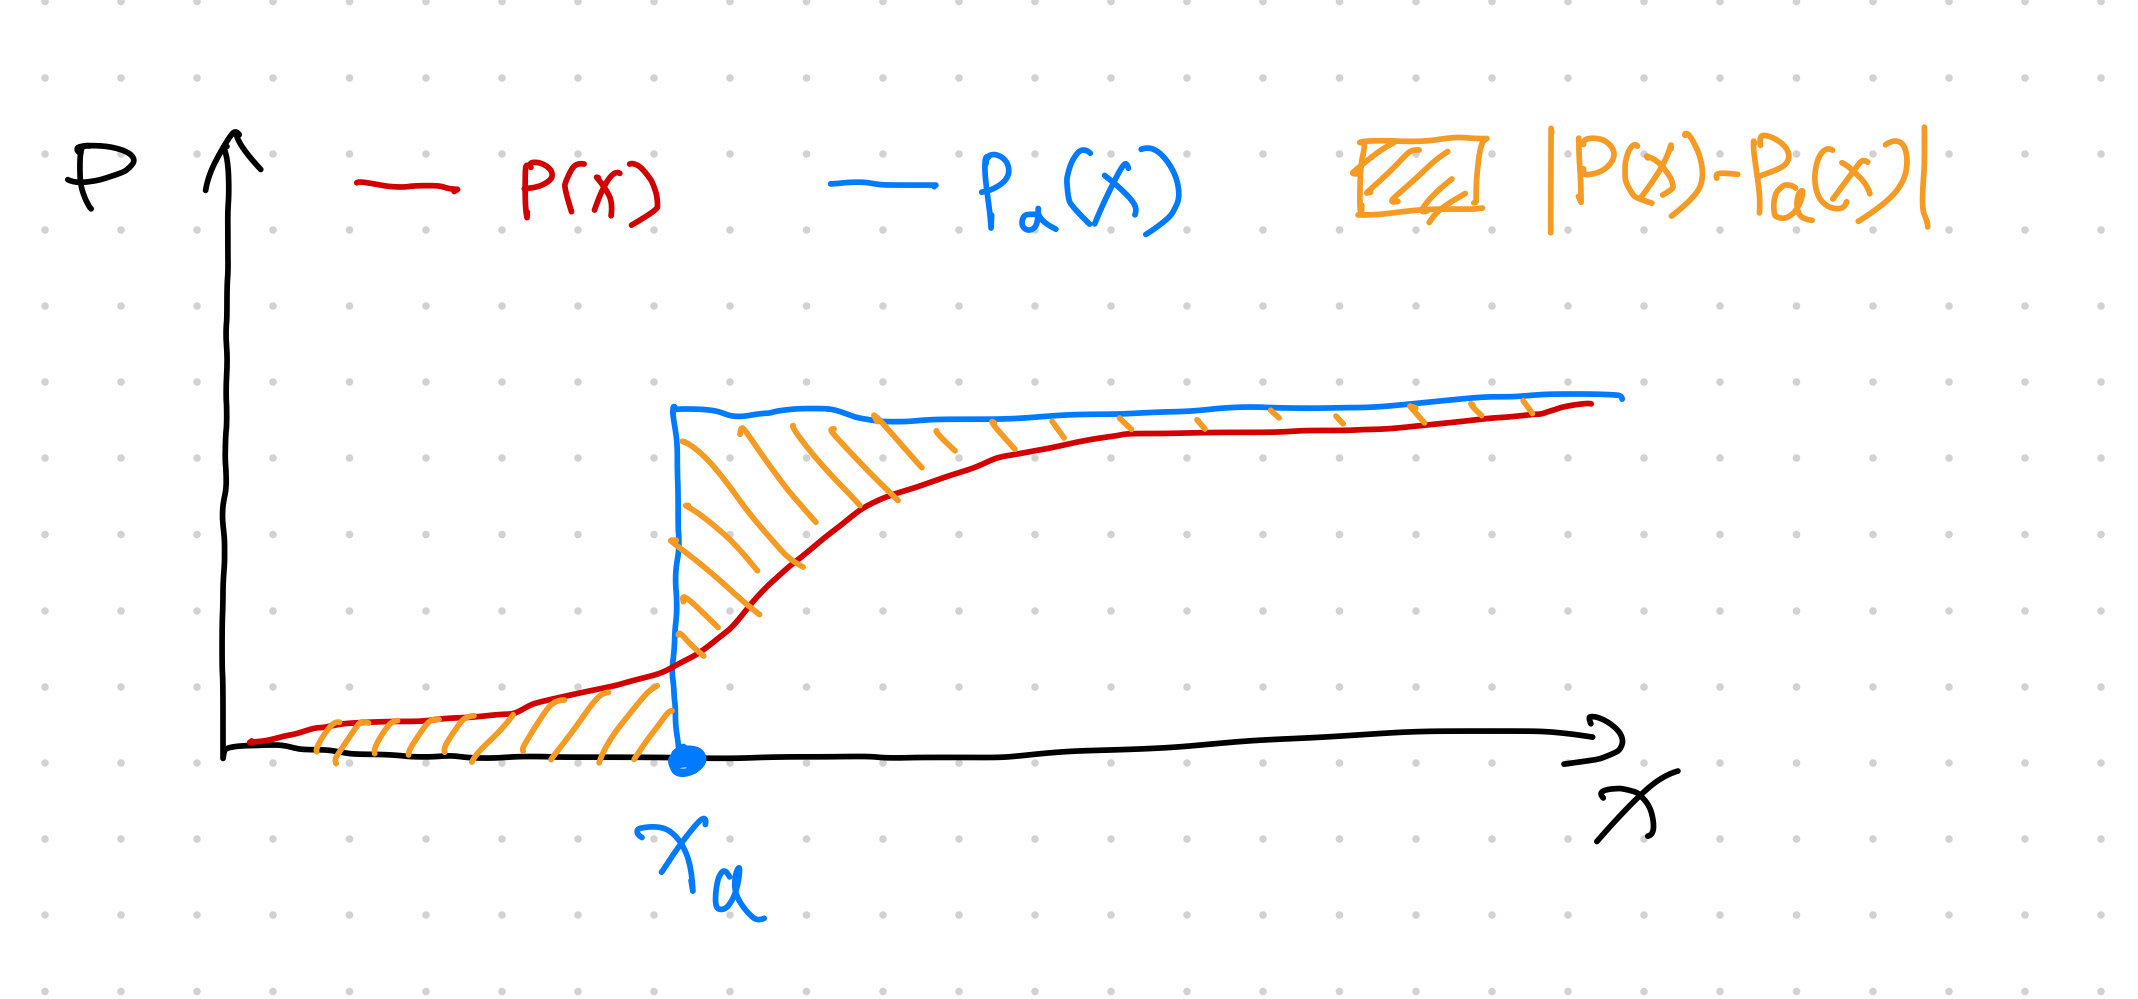 P P(x) Pa(x) |P(x)-Pa(x)|
x
xa